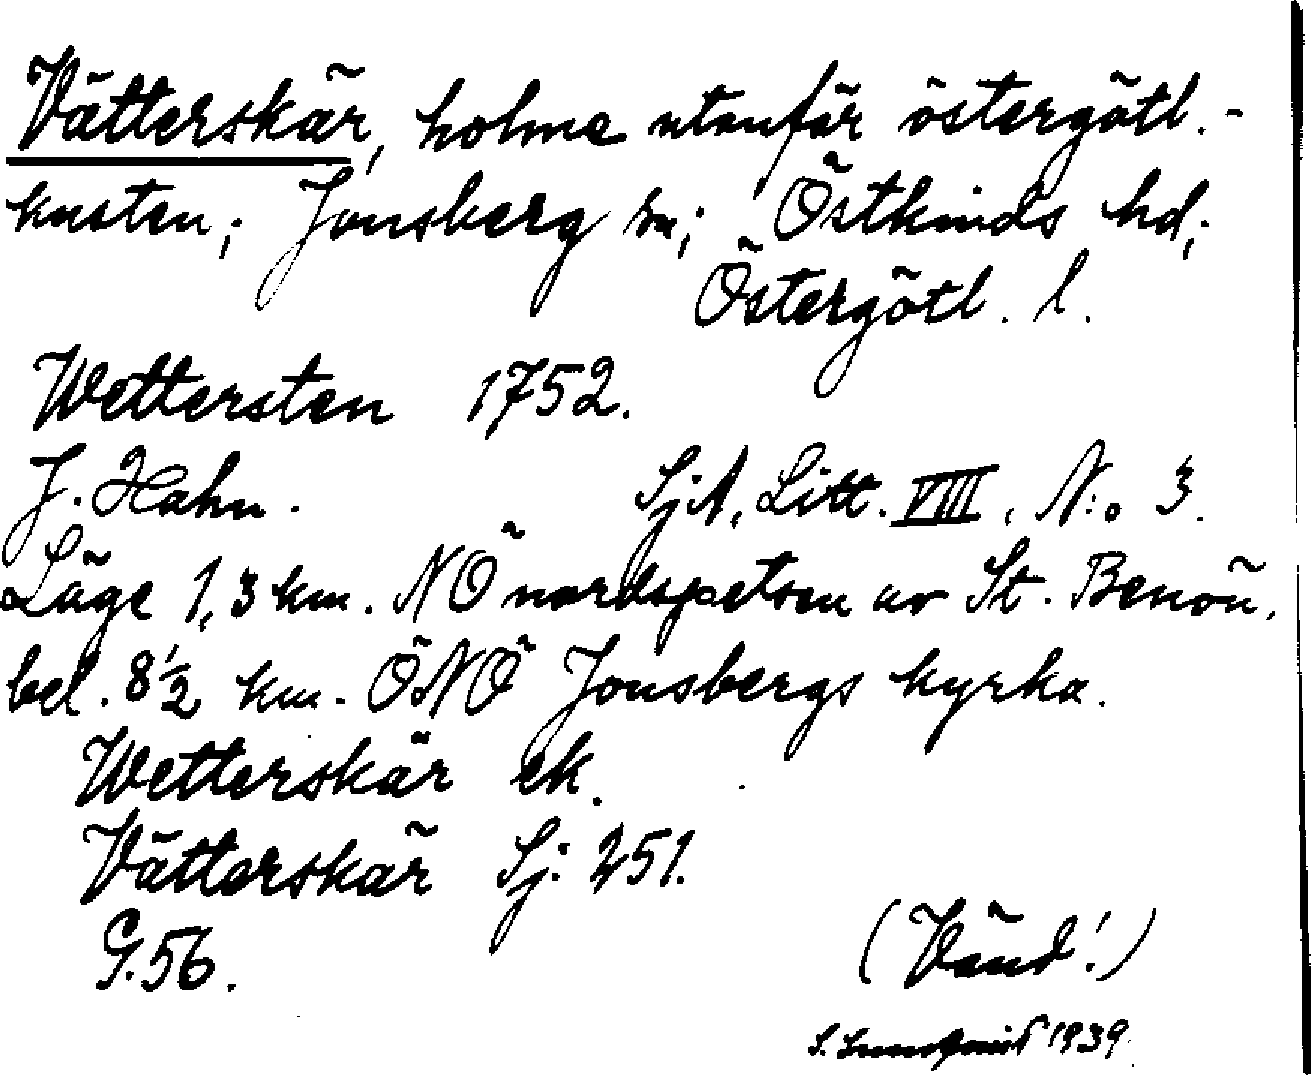 Vätterskär, holme utanför östergötl.-
kusten; Jonsberg sn; Östkinds hd;
Östergötl. l.
Wettersten 1752.
J. Hahn. SjA, Litt. VIII, N:o 3.
Läge 1,3 km. NÖ nordspetsen av St. Benön,
bel. 8½ km. ÖNÖ Jonsbergs kyrka.
Wetterskär ek.
Vätterskär Sj. 251.
G. 56.
(Vänd!)
S. Lundqvist 1939